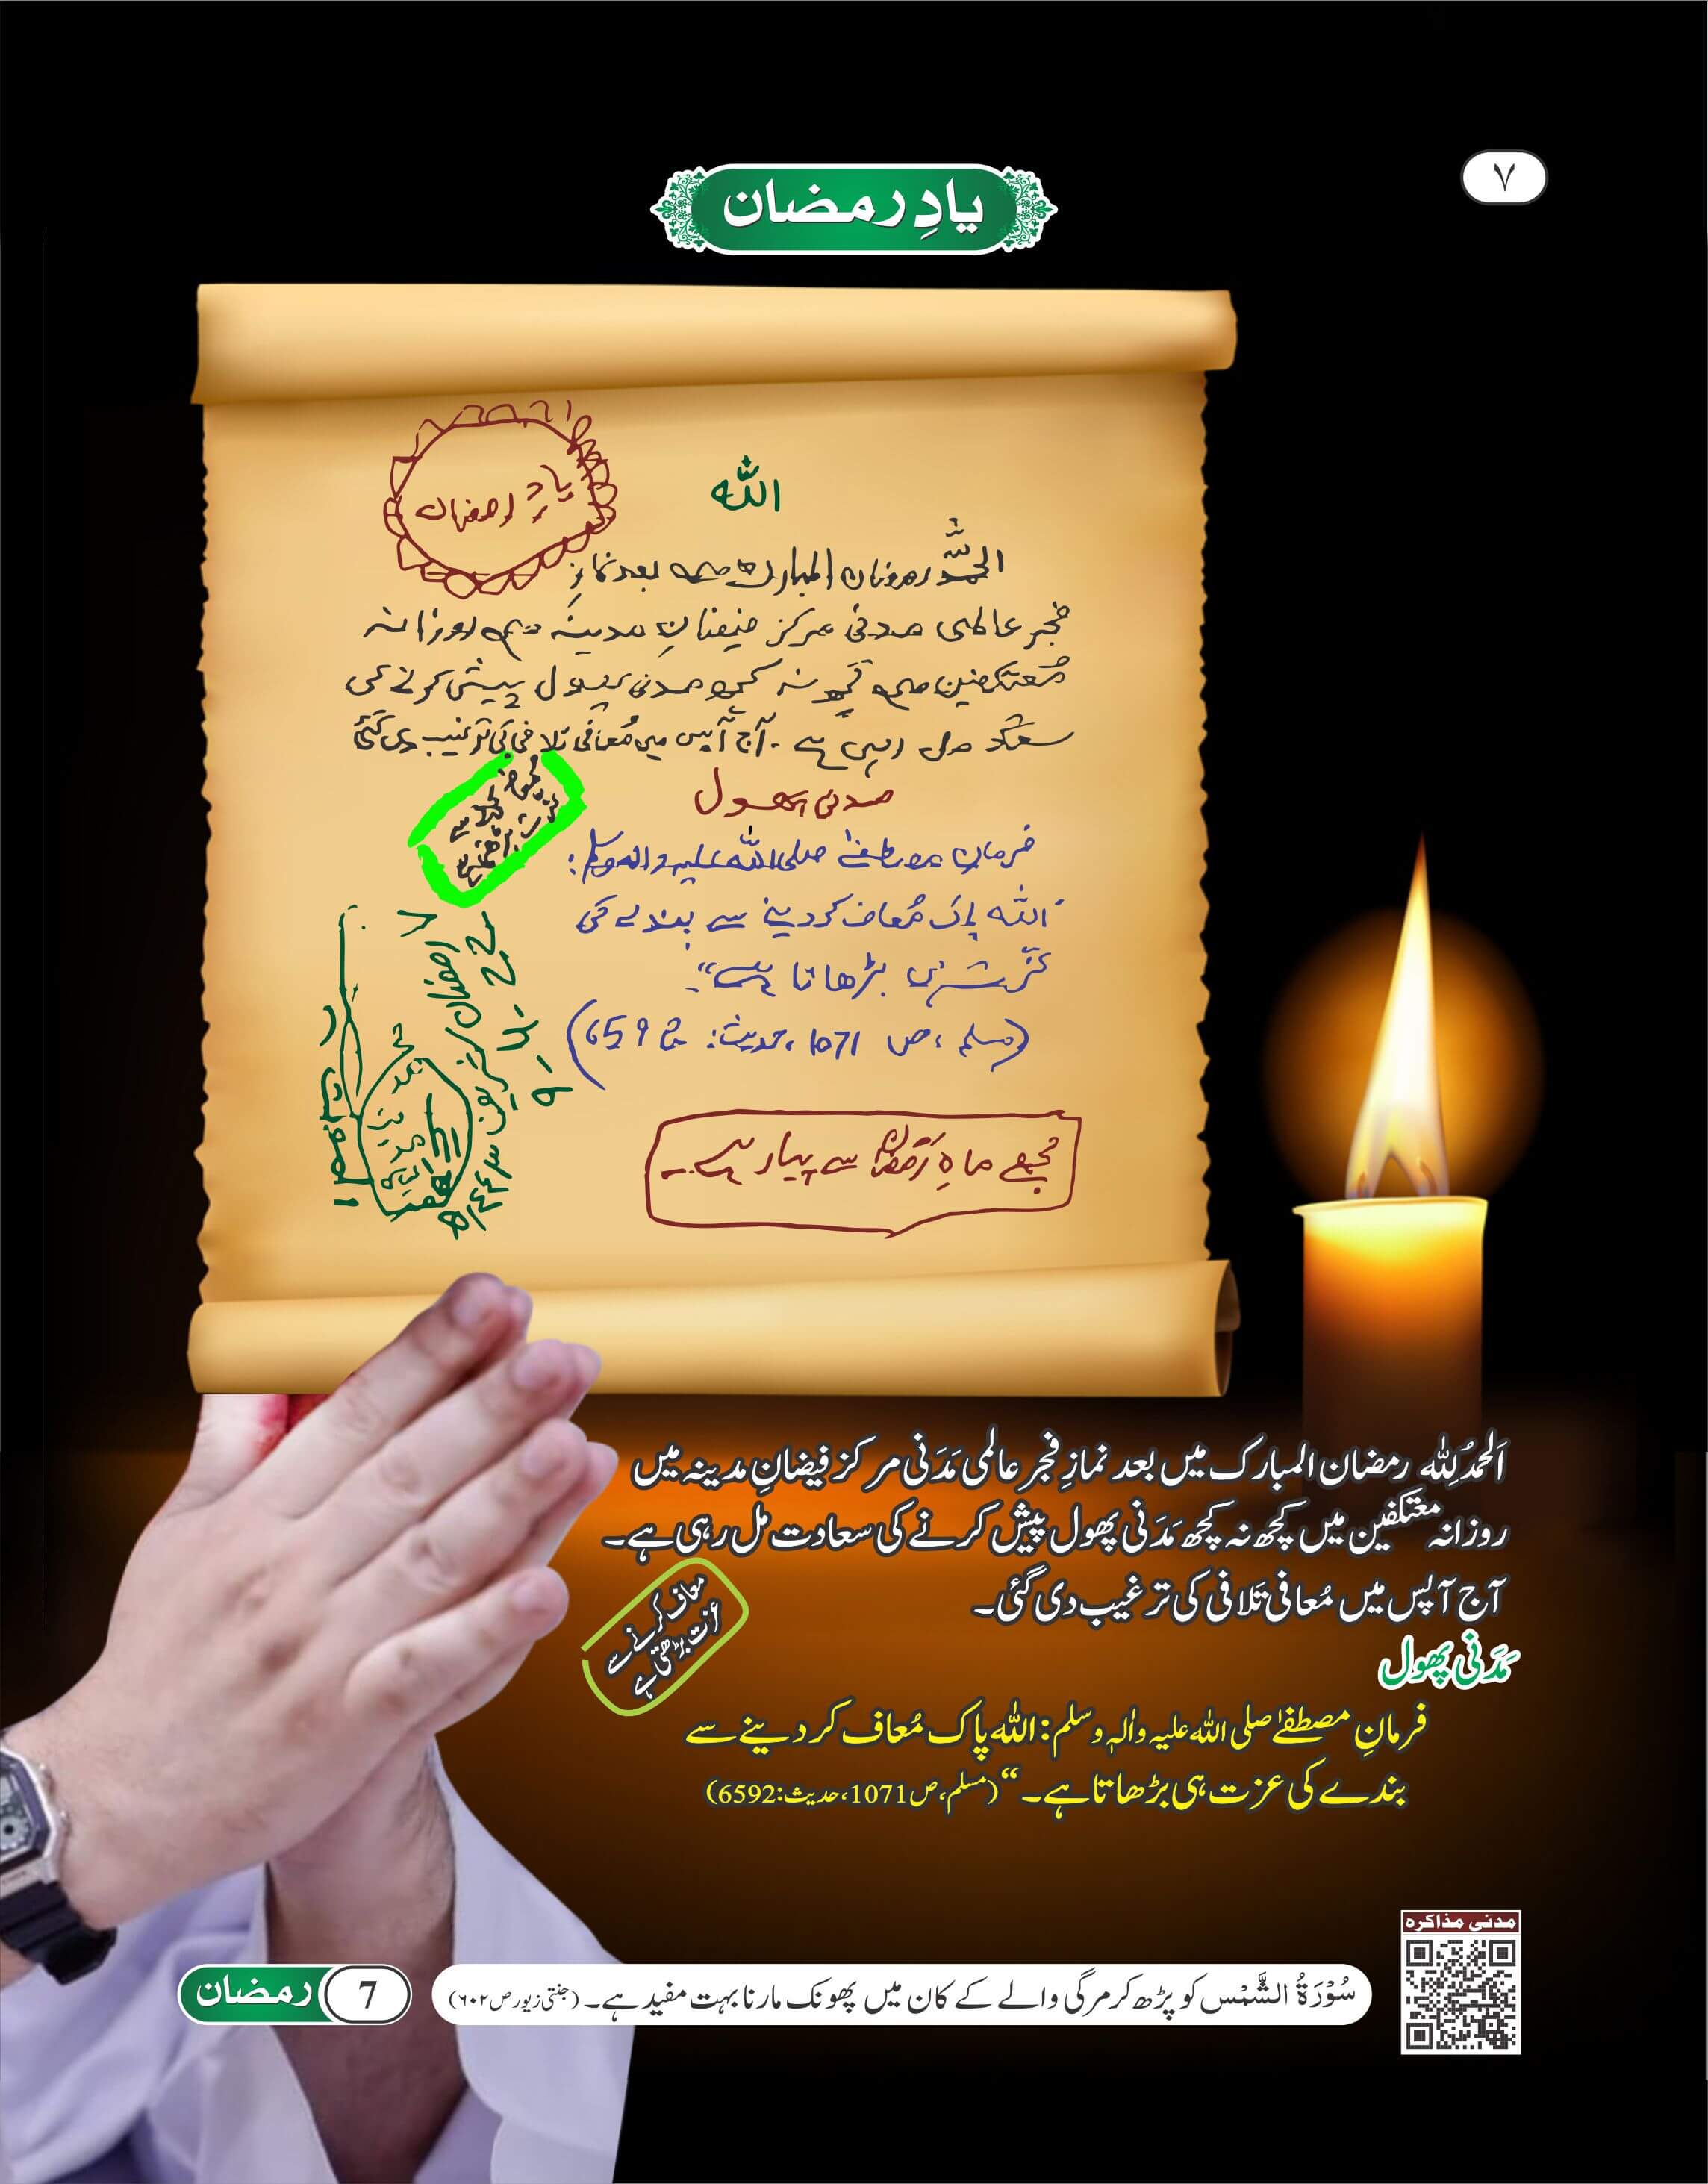 ۷
یادِ رمضان
یادِ رمضان
اللہ
الحمدللہ رمضان المبارک میں بعد نمازِ
فجر عالمی مدنی مرکز فیضانِ مدینہ میں روزانہ
مُعتکفین میں کچھ نہ کچھ مدنی پھول پیش کرنے کی
سعادت مل رہی ہے۔ آج آپس میں مُعافی تلافی کی ترغیب دی گئی
مدنی پھول
فرمانِ مصطفےٰ صلی اللہ علیہ واٰلہٖ وسلم:
"اللہ پاک مُعاف کردینے سے بندے کی
عزّت ہی بڑھاتا ہے"۔
(مسلم، ص 1071، حدیث: 6592)
۷ رمضان شریف ۱۴۴۳ھ
۹-۴-۲۲
مُجھے ماہِ رَمَضان سے پیار ہے۔
اَلحمدُلِلّٰہ رمضان المبارک میں بعد نمازِ فجر عالمی مَدَنی مرکز فیضانِ مدینہ میں
روزانہ معتکفین میں کچھ نہ کچھ مَدَنی پھول پیش کرنے کی سعادت مل رہی ہے۔
آج آپس میں مُعافی تَلافی کی ترغیب دی گئی۔
معاف کرنے سے
عزت بڑھتی ہے
مَدَنی پھول
فرمانِ مصطفےٰ صلی اللہ علیہ واٰلہٖ وسلم: اللہ پاک مُعاف کر دینے سے
بندے کی عزت ہی بڑھاتا ہے۔“ (مسلم، ص1071، حدیث:6592)
مدنی مذاکرہ
سُوْرَۃُ الشَّمْس کو پڑھ کر مرگی والے کے کان میں پھونک مارنا بہت مفید ہے۔ (جنتی زیور ص۶۰۲)
7 رمضان